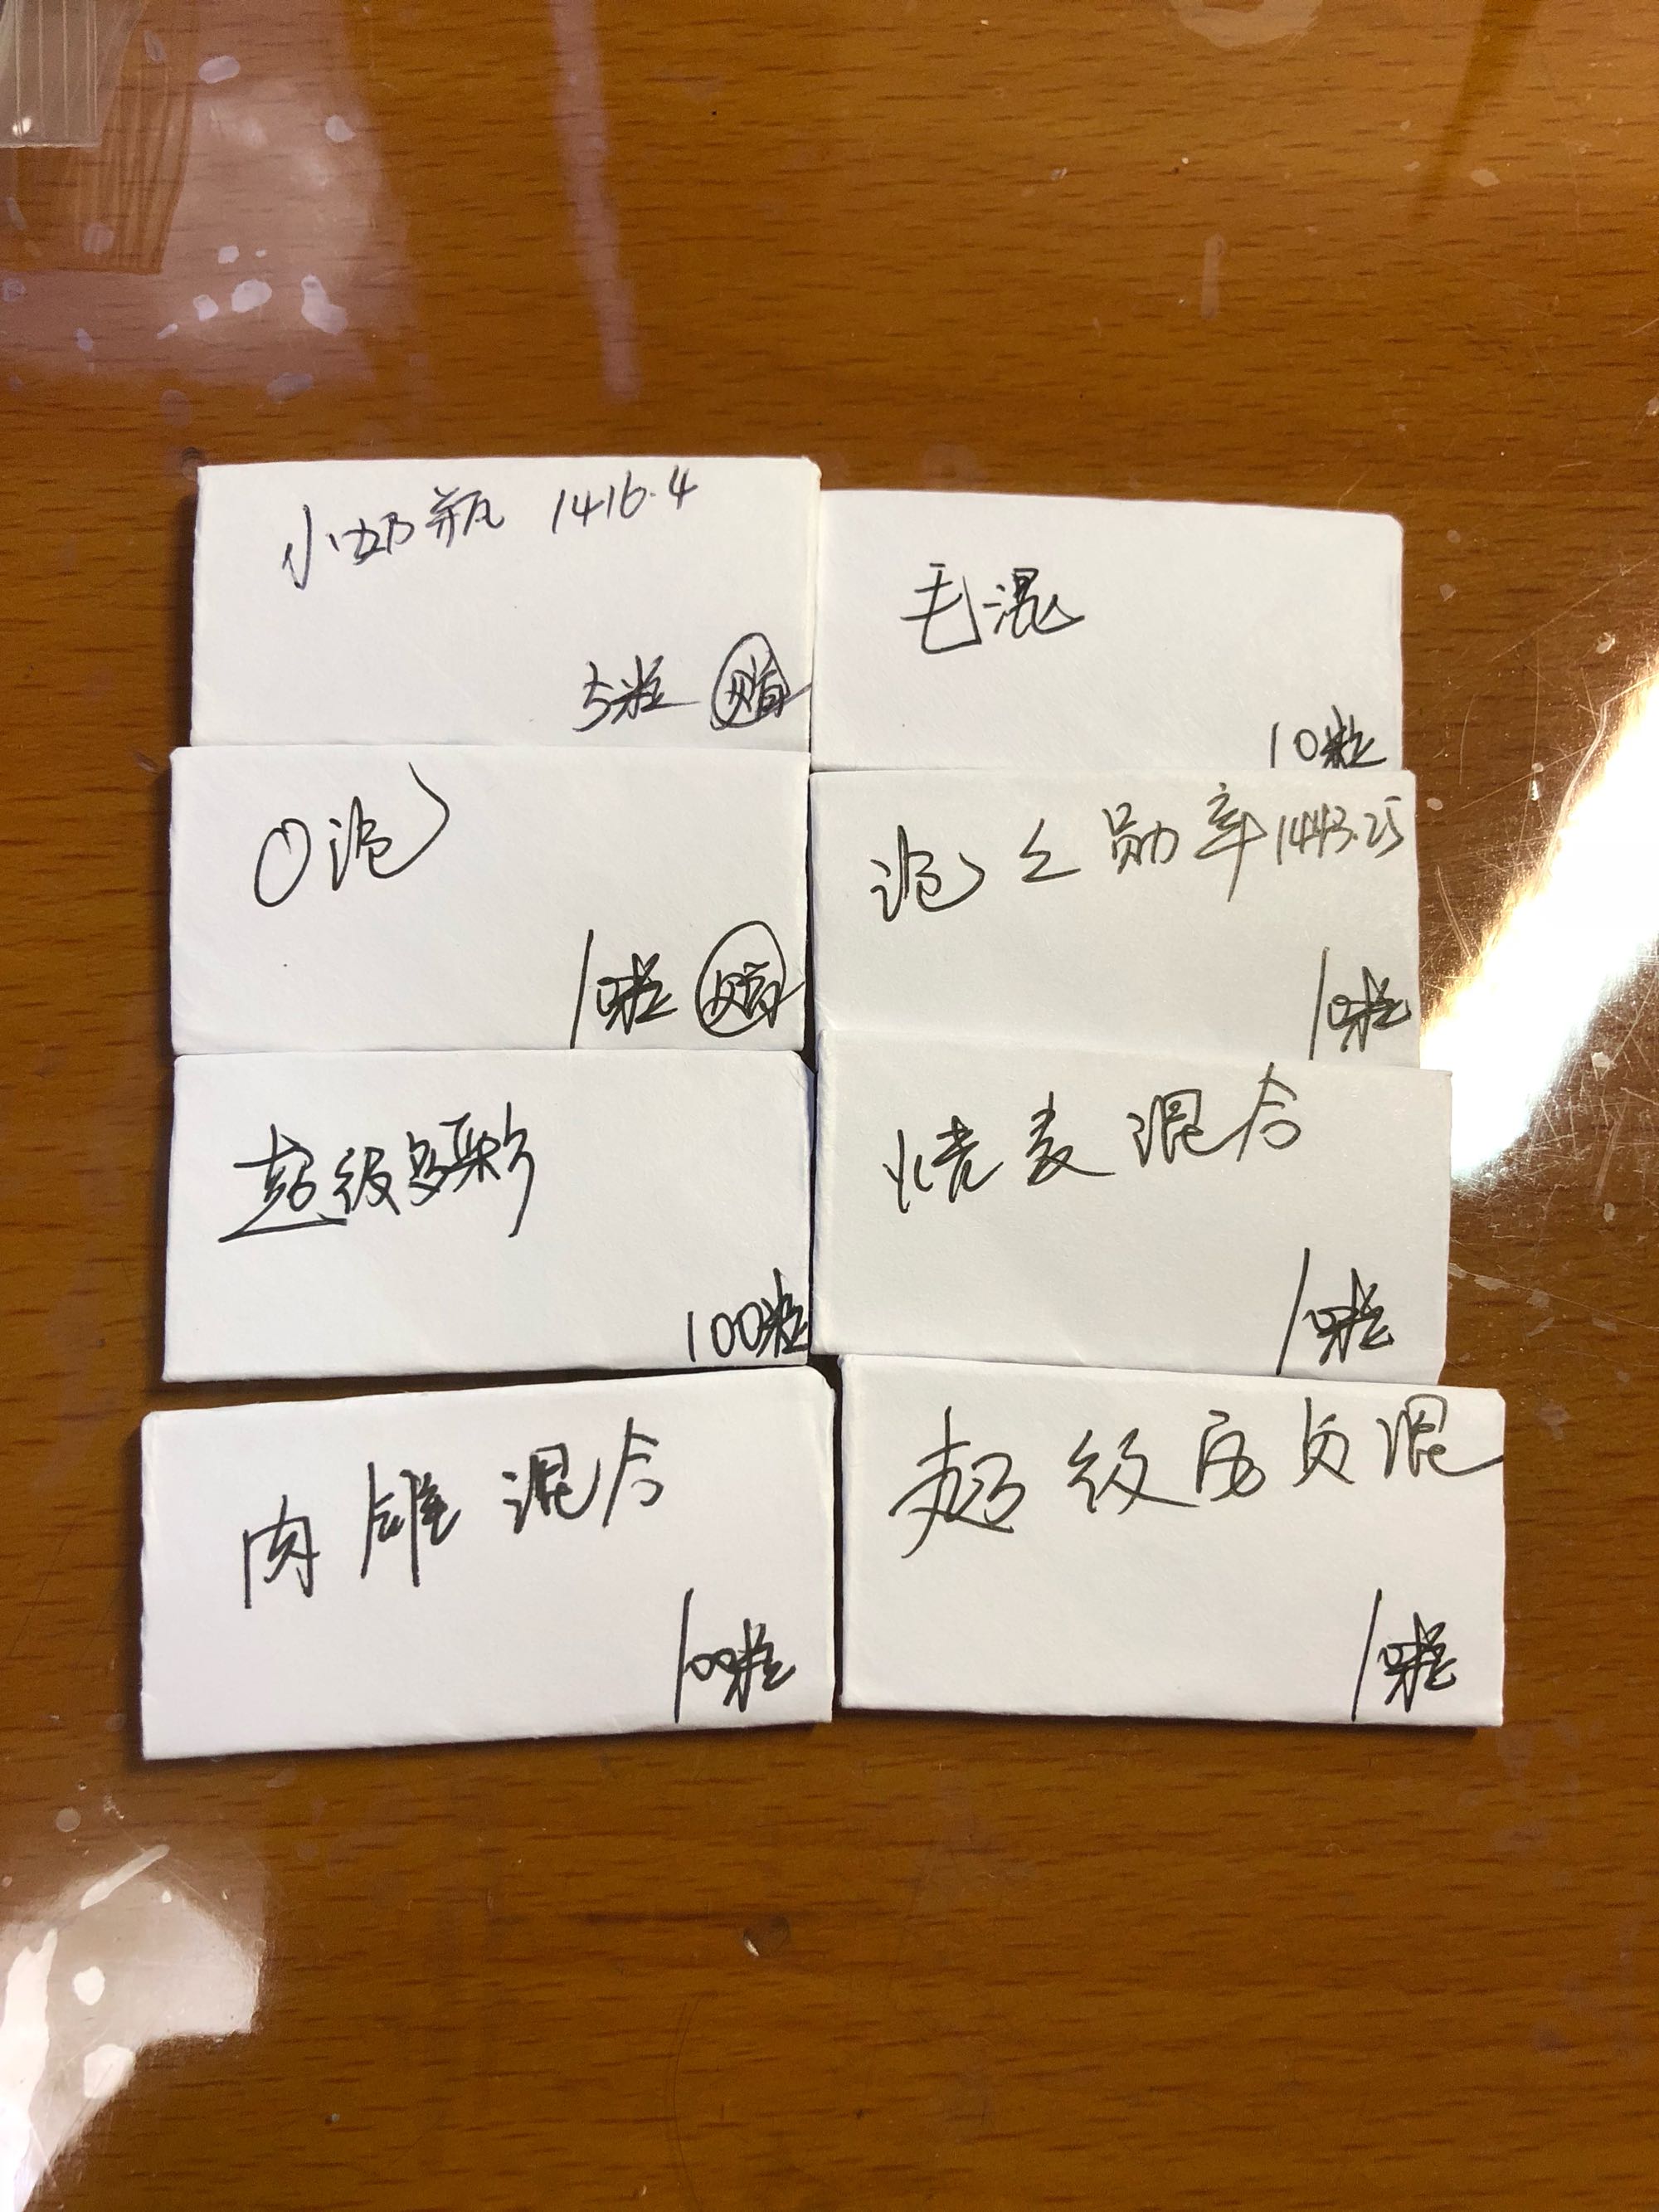 小奶瓶 1416.4
5粒 赠
毛混
10粒
O滟
10粒 赠
滟 勋章1443.25
10粒
超级多彩
100粒
烧麦混合
10粒
肉雄混合
100粒
超级寿贞混
10粒